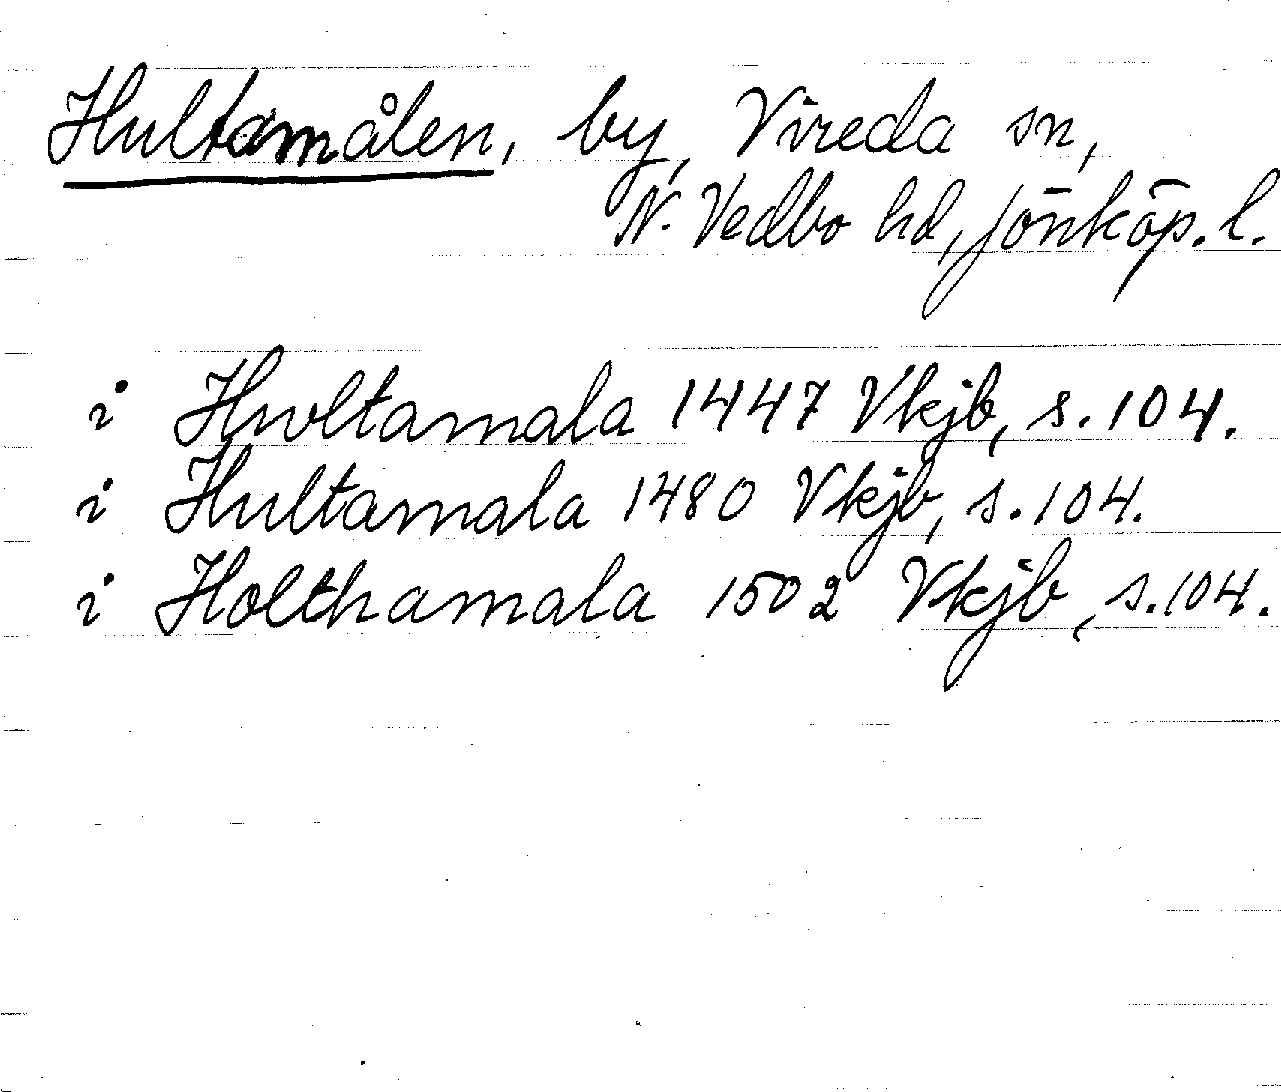 Hultamålen, by, Vireda sn,
N. Vedbo hd, Jönköp. l.
i Hwltamala 1447 Vkjb, s. 104.
i Hultamala 1480 Vkjb, s. 104.
i Holthamala 1502 Vkjb, s. 104.